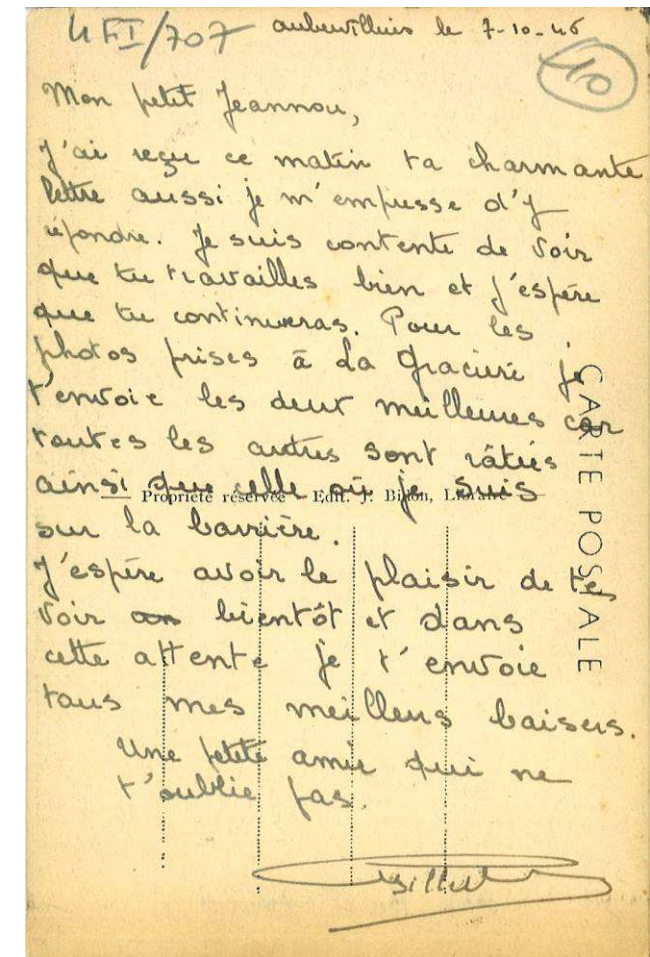 4 FI/707 aubervilliers le 7-10-46
10
Mon petit Jeannou,
J'ai reçu ce matin ta charmante
lettre aussi je m'empresse d'y
répondre. Je suis contente de voir
que tu travailles bien et j'espère
que tu continueras. Pour les
photos prises à La Gracieré je
t'envoie les deux meilleures car
toutes les autres sont râtées
ainsi que celle où je suis
Propriété réservée Edit. J. Libraire
sur la barrière.
J'espère avoir le plaisir de te
voir bientôt et dans
cette attente je t'envoie
tous mes meilleurs baisers.
Une petite amie qui ne
t'oublie pas.
CARTE POSTALE